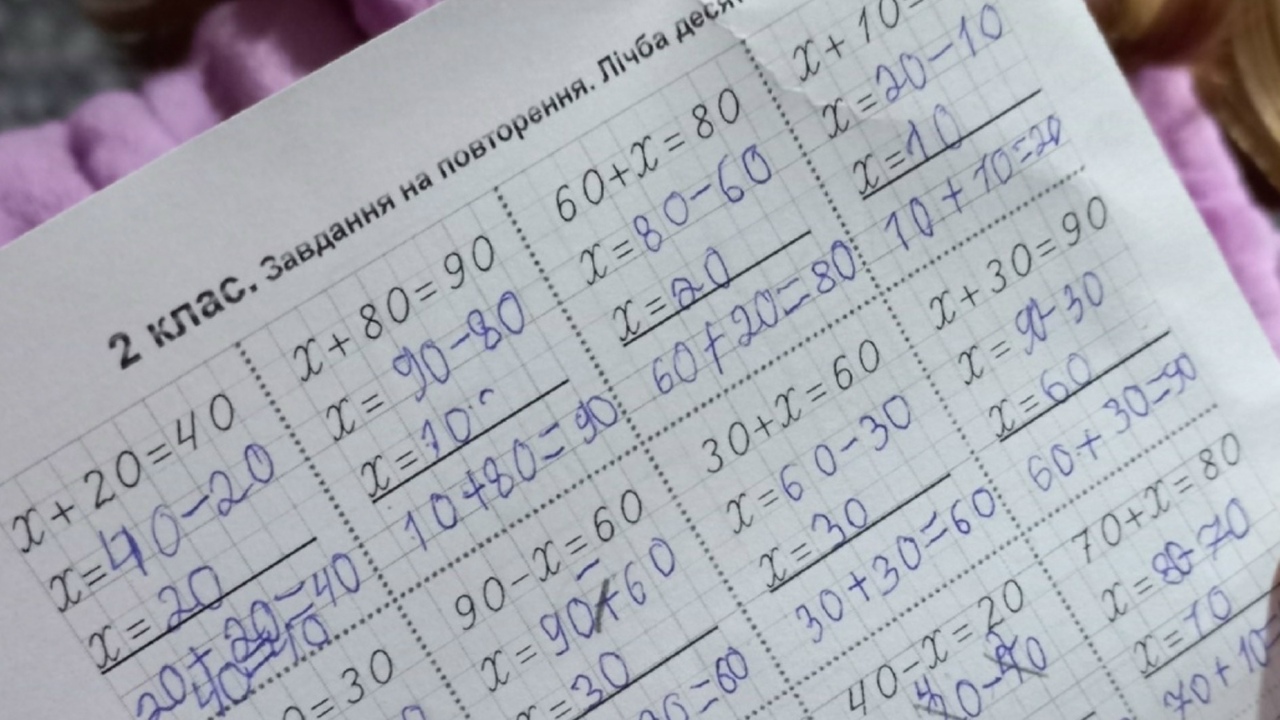 2 клас. Завдання на повторення. Лічба
x + 20 = 40
x = 40 - 20
x = 20
x + 80 = 90
x = 90 - 80
x = 10
10 + 80 = 90
60 + x = 80
x = 80 - 60
x = 20
60 + 20 = 80
x + 10 =
x = 20 - 10
x = 10
10 + 10 = 20
= 30
90 - x = 60
x = 90 - 60
x = 30
= 60
30 + x = 60
x = 60 - 30
x = 30
30 + 30 = 60
x + 30 = 90
x = 90 - 30
x = 60
60 + 30 = 90
40 - x = 20
70 + x = 80
x = 80 - 70
x = 10
70 + 10 =